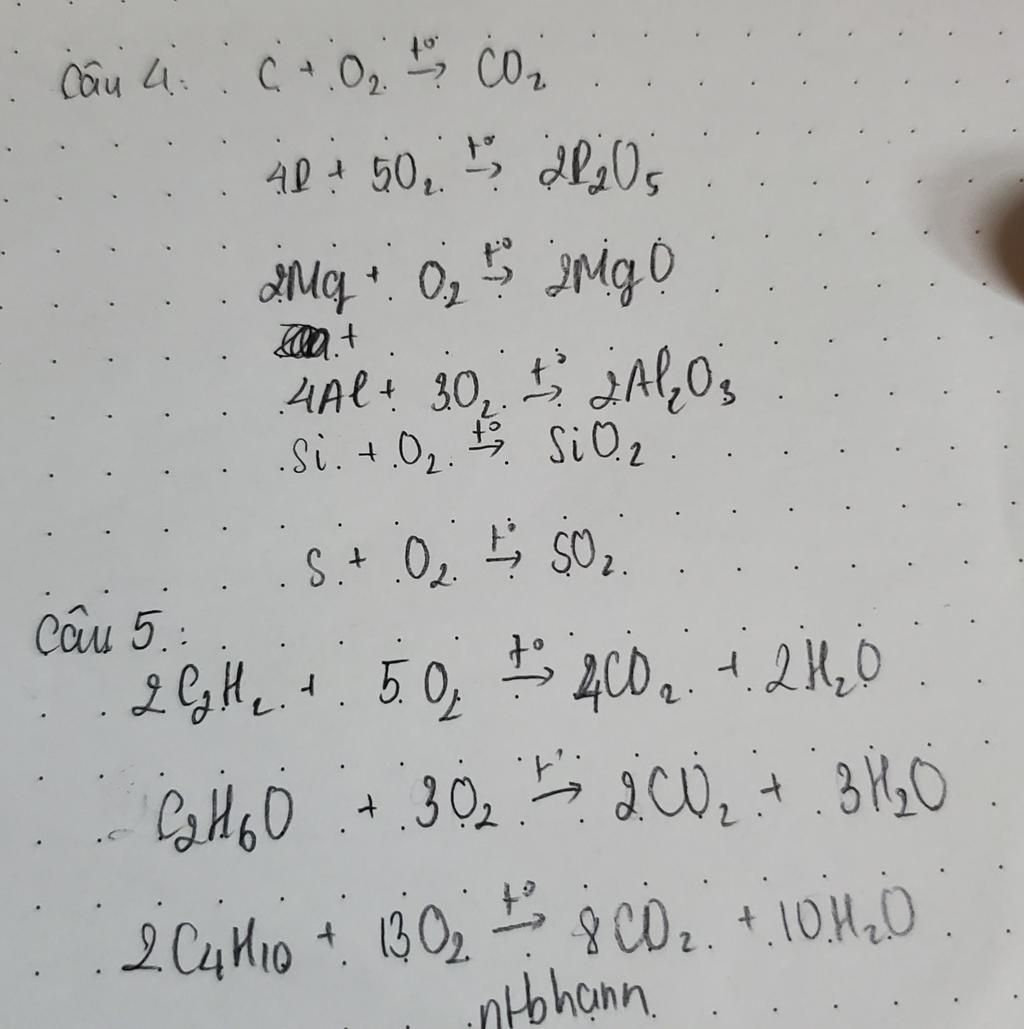 Câu 4: C + O₂ t° → CO₂
4P + 5O₂ t° → 2P₂O₅
2Mg + O₂ t° → 2MgO
+
4Al + 3O₂ t° → 2Al₂O₃
Si + O₂ t° → SiO₂
S + O₂ t° → SO₂
Câu 5:
2C₂H₂ + 5O₂ t° → 4CO₂ + 2H₂O
C₂H₆O + 3O₂ t° → 2CO₂ + 3H₂O
2C₄H₁₀ + 13O₂ t° → 8CO₂ + 10H₂O
ntbhann